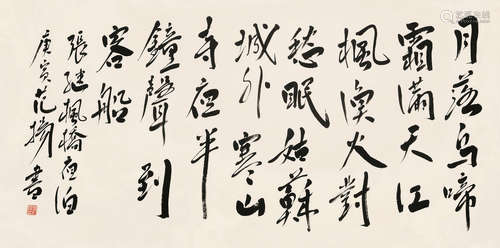 月落烏啼
霜滿天江
楓漁火對
愁眠姑蘇
城外寒山
寺夜半
鐘聲到
客船
張繼楓橋夜泊
庚寅范揚書